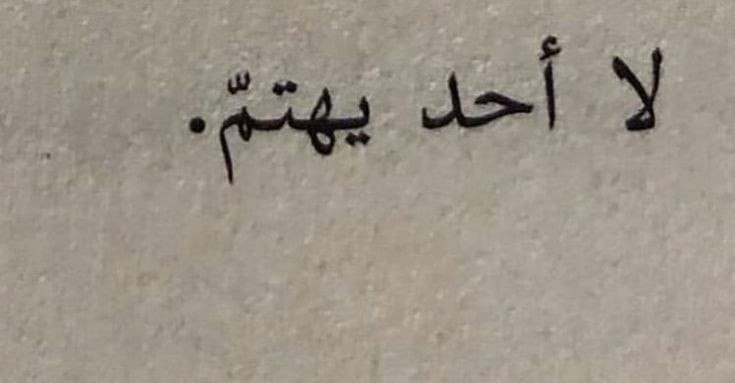 لا أحد يهتمّ.